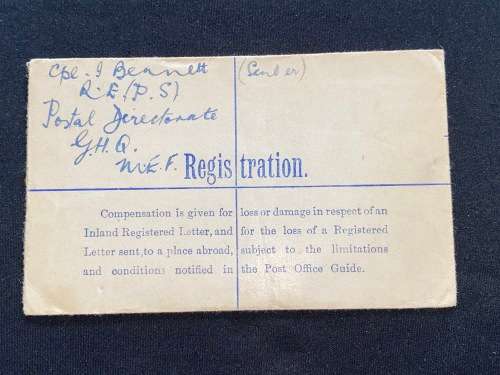 Cpl. I Bennett (Sender)
R.E.(P.S)
Postal Directorate
G.H.Q.
M.E.F.
Registration.
Compensation is given for loss or damage in respect of an
Inland Registered Letter, and for the loss of a Registered
Letter sent, to a place abroad, subject to the limitations
and conditions notified in the Post Office Guide.